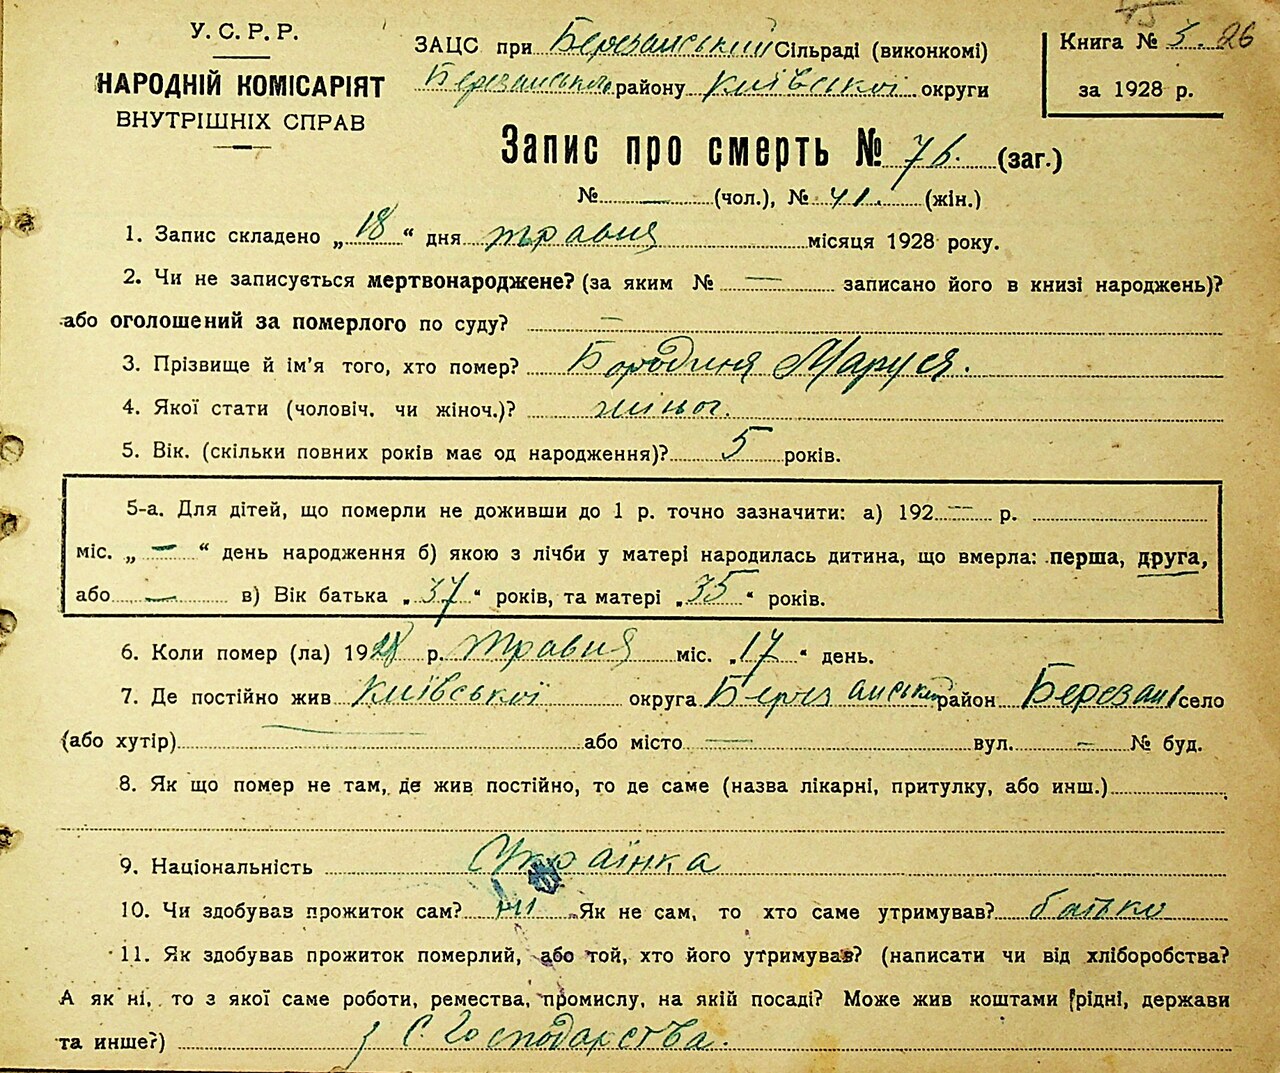 У. С. Р. Р.
НАРОДНІЙ КОМІСАРІЯТ
ВНУТРІШНІХ СПРАВ
ЗАЦС при Березанський Сільраді (виконкомі)
Березанського району Київської округи
Книга № 3. 26
за 1928 р.
Запис про смерть № 76. (заг.)
№ — (чол.), № 41. (жін.)
1. Запис складено „18“ дня травня місяця 1928 року.
2. Чи не записується мертвонароджене? (за яким № — записано його в книзі народжень)?
або оголошений за померлого по суду? —
3. Прізвище й ім'я того, хто помер? Бородиня Маруся.
4. Якої стати (чоловіч. чи жіноч.)? жіноч.
5. Вік. (скільки повних років має од народження)? 5 років.
5-а. Для дітей, що померли не доживши до 1 р. точно зазначити: а) 192 — р.
міс. „ — “ день народження б) якою з лічби у матері народилась дитина, що вмерла: перша, друга,
або — в) Вік батька „37“ років, та матері „35“ років.
6. Коли помер (ла) 1928 р. травня міс. „17“ день.
7. Де постійно жив Київської округа Березанський район Березань село
(або хутір) — або місто — вул. — № буд.
8. Як що помер не там, де жив постійно, то де саме (назва лікарні, притулку, або инш.)
9. Національність Українка
10. Чи здобував прожиток сам? ні Як не сам, то хто саме утримував? батько
11. Як здобував прожиток померлий, або той, хто його утримував? (написати чи від хліборобства?
А як ні, то з якої саме роботи, ремества, промислу, на якій посаді? Може жив коштами рідні, держави
та инше?) з С. Господарства.